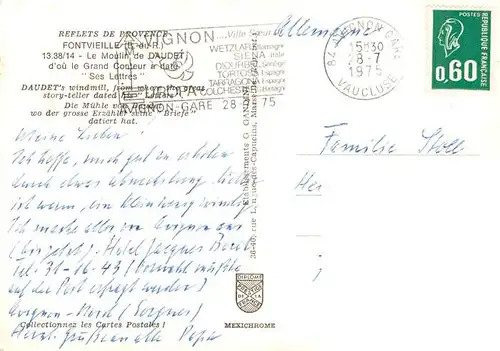 REFLETS DE PROVENCE
FONTVIEILLE (B.-d.-R.)
13.38/14 - Le Moulin de DAUDET
d'où le Grand Conteur a daté
"Ses Lettres"
DAUDET's windmill, from where the great
story-teller dated his "Letters"
Die Mühle von Daudet
wo der grosse Erzähler seine "Briefe"
datiert hat.
AVIGNON ...Ville Sœur
WETZLAR
SIENA
DIOURBEL
TORTOSA
TARRAGONA
COLCHESTER
EUROPA
AVIGNON-GARE 28-7-75
Allemagne
84 AVIGNON GARE
15H30
28-7
1975
VAUCLUSE
POSTES
RÉPUBLIQUE FRANÇAISE
0,60
Meine Lieben!
Ich hoffe, mich gut zu erholen
durch etwas Abwechslung. Hier
ist warm, ein klein wenig windig.
Ich mache alles von Avignon aus
(bis jetzt). Hotel Jacques
Tel: 31-16-43 (Vorwahl müßte
auf der Post erfragt werden)
Avignon-Nord (Sorgues)
Herzl. Grüße an alle Papa
Familie Stoll
Établissements G. GANDINI
36-40, rue Longue-des-Capucins, Marseille
DIPLOME
MEXICHROME
Collectionnez les Cartes Postales !